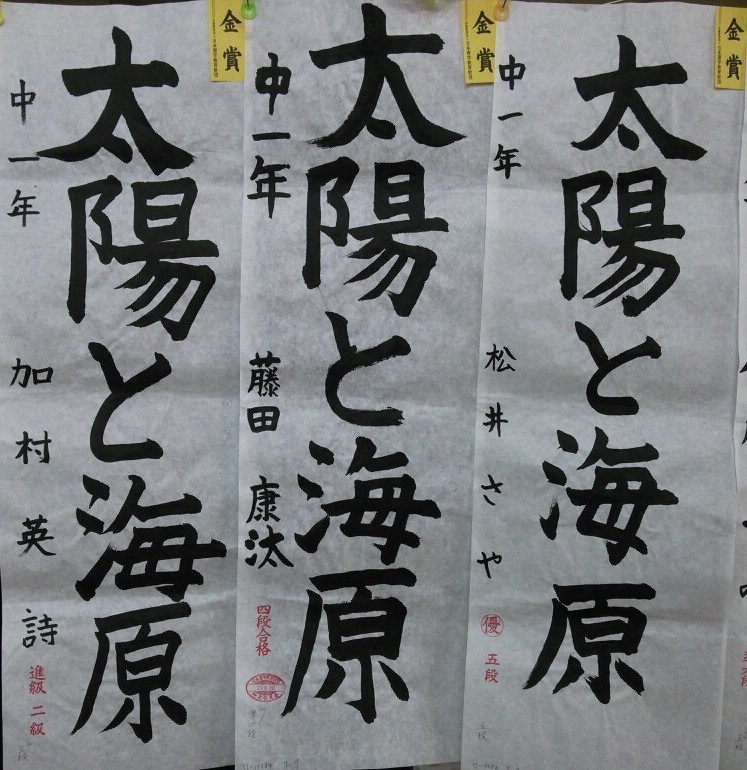 金賞
太陽と海原
中一年 加村英詩
進級 二級
金賞
太陽と海原
中一年 藤田 康汰
四段合格
金賞
太陽と海原
中一年 松井さや
優 五段